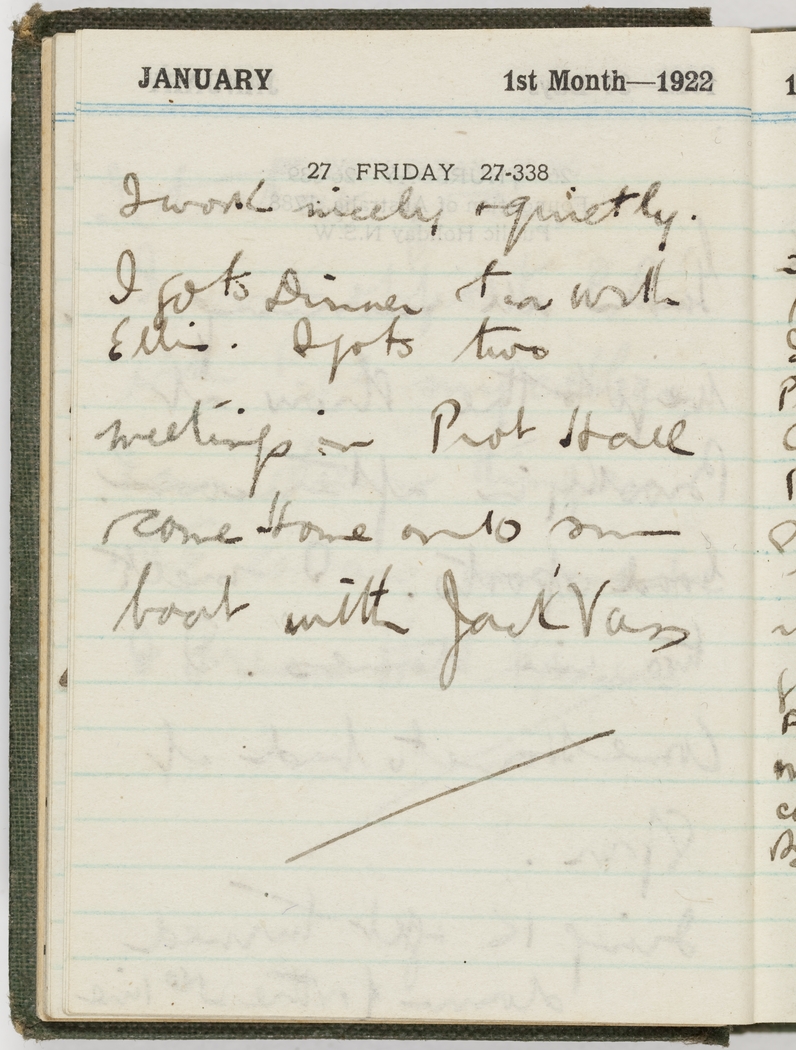 JANUARY 1st Month—1922
27 FRIDAY 27-338
I work nicely + quietly.
I go to Dinner tea with
Ellis. I go to two
meetings in Prot Hall
come Home onto
boat with Jack Vass